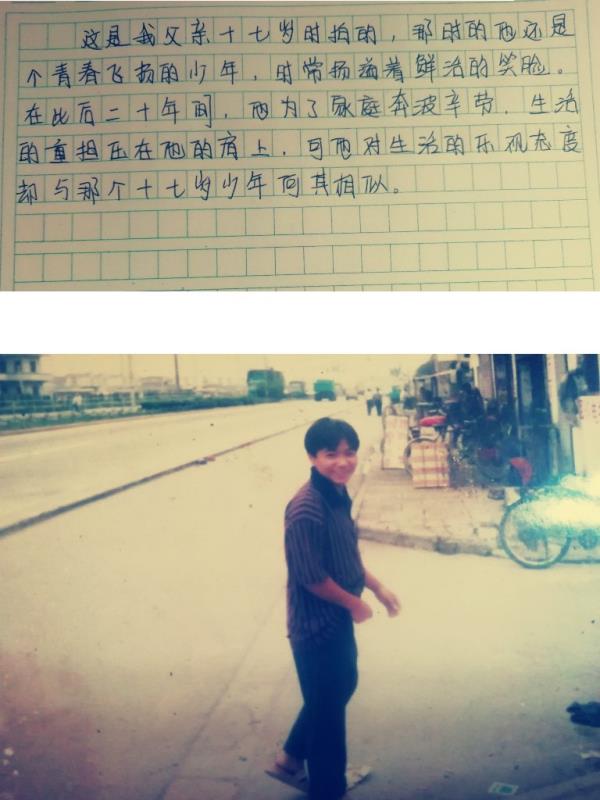 这是我父亲十七岁时拍的，那时的他还是
个青春飞扬的少年，时常扬溢着鲜活的笑脸。
在此后二十年间，他为了家庭奔波辛劳，生活
的重担压在他的肩上，可他对生活的乐观态度
却与那个十七岁少年何其相似。